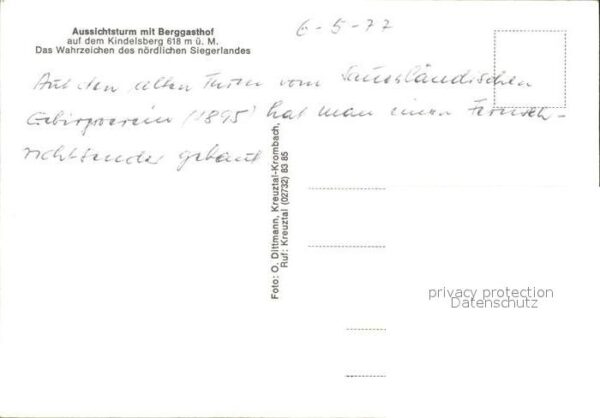 Aussichtsturm mit Berggasthof
auf dem Kindelsberg 618 m ü. M.
Das Wahrzeichen des nördlichen Siegerlandes
6-5-77
Auf den alten Turm vom Sauerländischen
Gebirgsverein (1895) hat man einen
gebaut
Foto: O. Dittmann, Kreuztal-Krombach,
Ruf: Kreuztal (02732) 83 85
privacy protection
Datenschutz